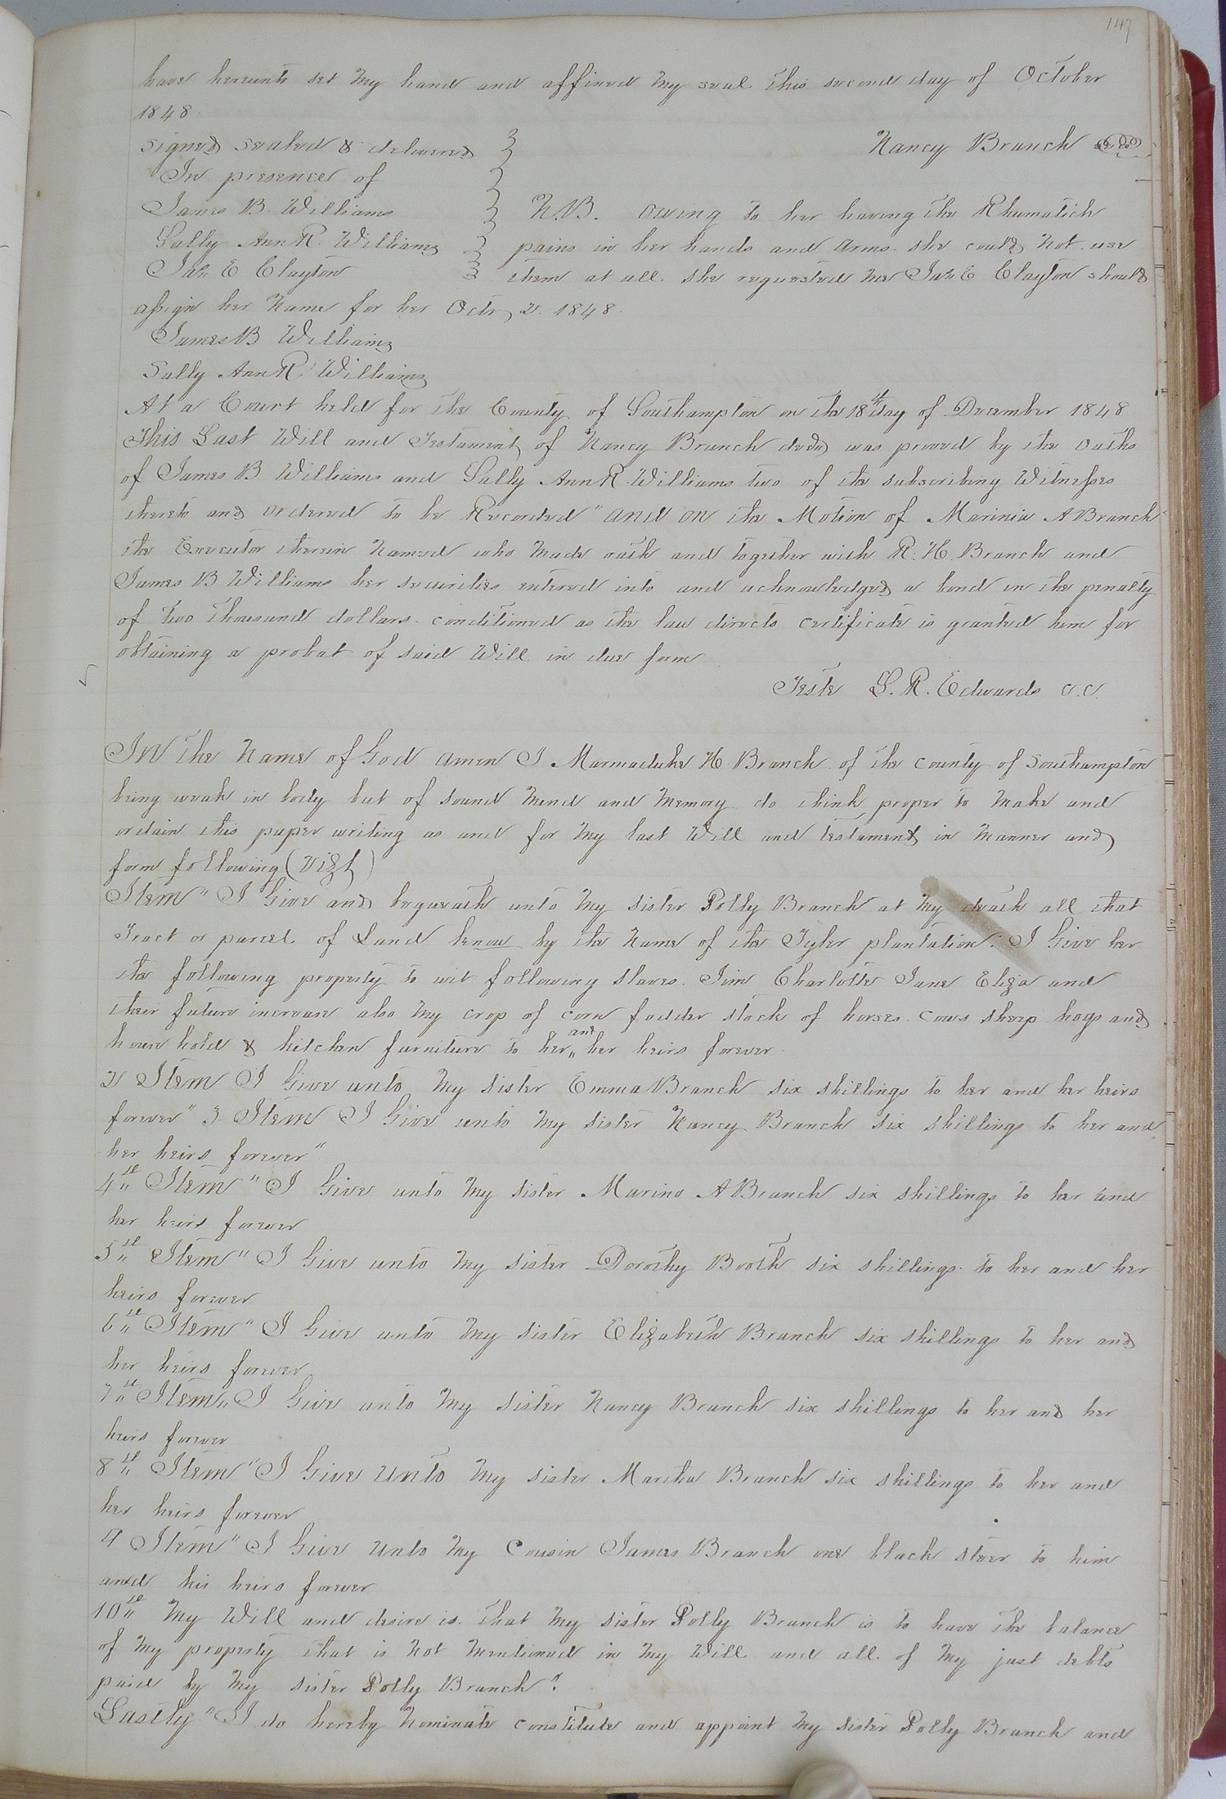 147
have hereunto set my hand and affixed my seal this second day of October
1848.
signed sealed & delivered
Nancy Branch
In presence of
James B Williams
N.B. owing to her having the Rhumatick
Sally Ann R. Williams
pains in her hands and arms she could not use
Jas E Clayton
them at all she requested me Jas E Clayton should
assign her name for her Octr 2. 1848.
James B Williams
Sally Ann R Williams
At a Court held for the County of Southampton on the 18th day of December 1848
This Last Will and Testament of Nancy Branch decd was proved by the oaths
of James B Williams and Sally Ann R Williams two of the subscribing Witnesses
thereto and ordered to be Recorded" and on the Motion of Marinia A Branch
the Executor therein named who made oath and together with R. H. Branch and
James B Williams her securities entered into and acknowledged a bond in the penalty
of two thousand dollars conditioned as the law directs certificate is granted him for
obtaining a probat of said Will in due form
Teste L. R. Edwards c.c.
In the Name of God amen I Marmaduke H Branch of the county of Southampton
being weak in body but of sound mind and memory do think proper to make and
ordain this paper writing as and for my last Will and testament in manner and
form following (Vizt)
Item" I Give and bequeath unto my sister Polly Branch at my death all that
Tract or parcel of Land know by the name of the Tyler plantation. I Give her
the following property to wit following slaves. Jim Charlotte Jane Eliza and
their future increase also my crop of corn fodder stock of horses cows sheep hogs and
house hold & kitchen furniture to her and her heirs forever
2 Item I Give unto my sister Emma Branch six shillings to her and her heirs
forever" 3 Item I Give unto my sister Nancy Branch six shillings to her and
her heirs forever"
4th Item" I Give unto my sister Marino A Branch six shillings to her and
her heirs forever
5th Item" I Give unto my sister Dorothy Booth six shillings to her and her
heirs forever
6th Item" I Give unto my sister Elizabeth Branch six shillings to her and
her heirs forever
7th Item" I Give unto my sister Nancy Branch six shillings to her and her
heirs forever
8th Item" I Give unto my sister Martha Branch six shillings to her and
her heirs forever
9 Item" I Give unto my Cousin James Branch one black steer to him
and his heirs forever
10th My Will and desire is that my sister Polly Branch is to have the balance
of my property that is not mentioned in my Will and all of my just debts
paid by my sister Polly Branch"
Lastly" I do hereby nominate constitute and appoint my sister Polly Branch and